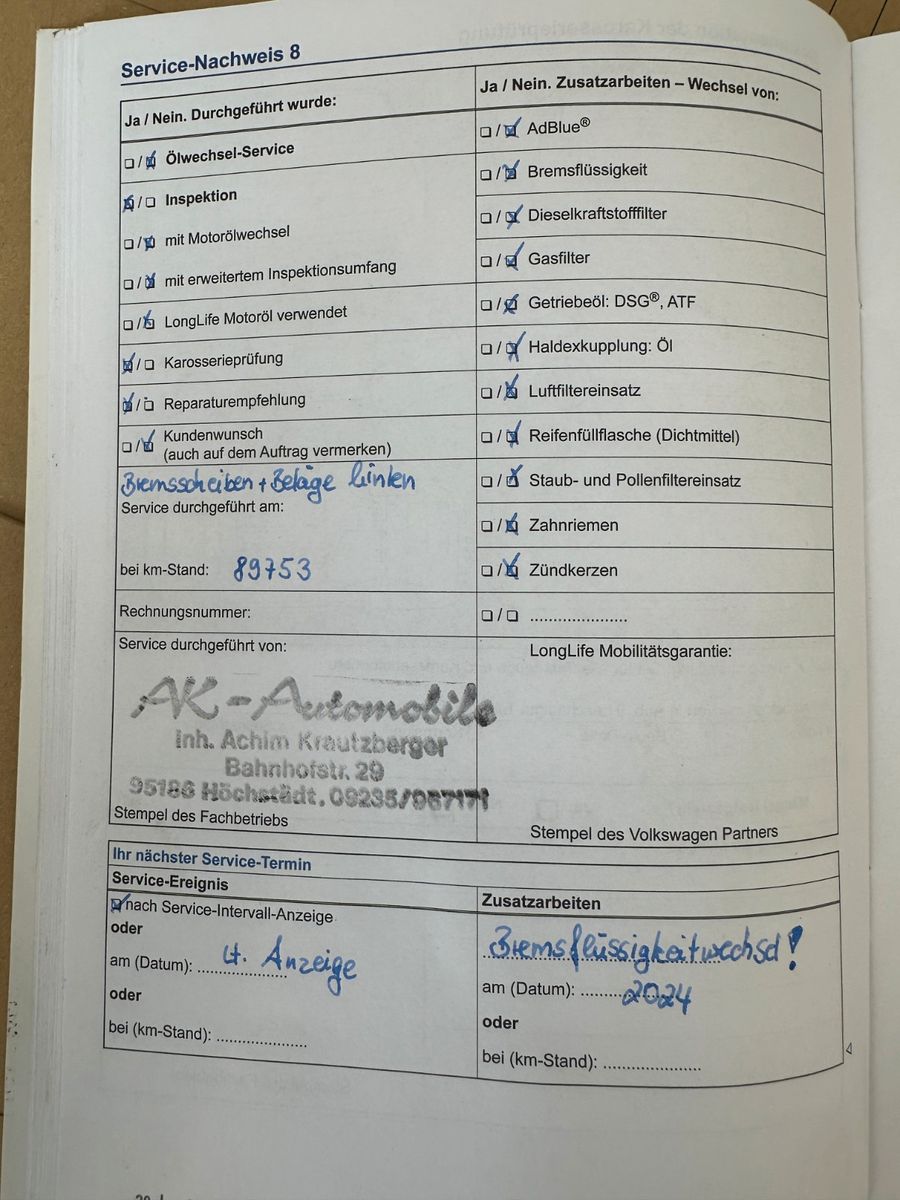 Service-Nachweis 8
Ja / Nein. Durchgeführt wurde:
☐ / ☒ Ölwechsel-Service
☒ / ☐ Inspektion
☐ / ☒ mit Motorölwechsel
☐ / ☒ mit erweitertem Inspektionsumfang
☐ / ☒ LongLife Motoröl verwendet
☒ / ☐ Karosserieprüfung
☒ / ☐ Reparaturempfehlung
☐ / ☒ Kundenwunsch
(auch auf dem Auftrag vermerken)
Bremsscheiben + Beläge hinten
Service durchgeführt am:
bei km-Stand: 89753
Rechnungsnummer:
Service durchgeführt von:
AK-Automobile
Inh. Achim Krautzberger
Bahnhofstr. 29
95186 Höchstädt, 09235/967171
Stempel des Fachbetriebs
Ja / Nein. Zusatzarbeiten – Wechsel von:
☐ / ☒ AdBlue®
☐ / ☒ Bremsflüssigkeit
☐ / ☒ Dieselkraftstofffilter
☐ / ☒ Gasfilter
☐ / ☒ Getriebeöl: DSG®, ATF
☐ / ☒ Haldexkupplung: Öl
☐ / ☒ Luftfiltereinsatz
☐ / ☒ Reifenfüllflasche (Dichtmittel)
☐ / ☒ Staub- und Pollenfiltereinsatz
☐ / ☒ Zahnriemen
☐ / ☒ Zündkerzen
☐ / ☐ .....................
LongLife Mobilitätsgarantie:
Stempel des Volkswagen Partners
Ihr nächster Service-Termin
Service-Ereignis
☒ nach Service-Intervall-Anzeige
oder
am (Datum): lt. Anzeige
oder
bei (km-Stand): ....................
Zusatzarbeiten
Bremsflüssigkeitwechsel!
am (Datum): 2024
oder
bei (km-Stand): .....................